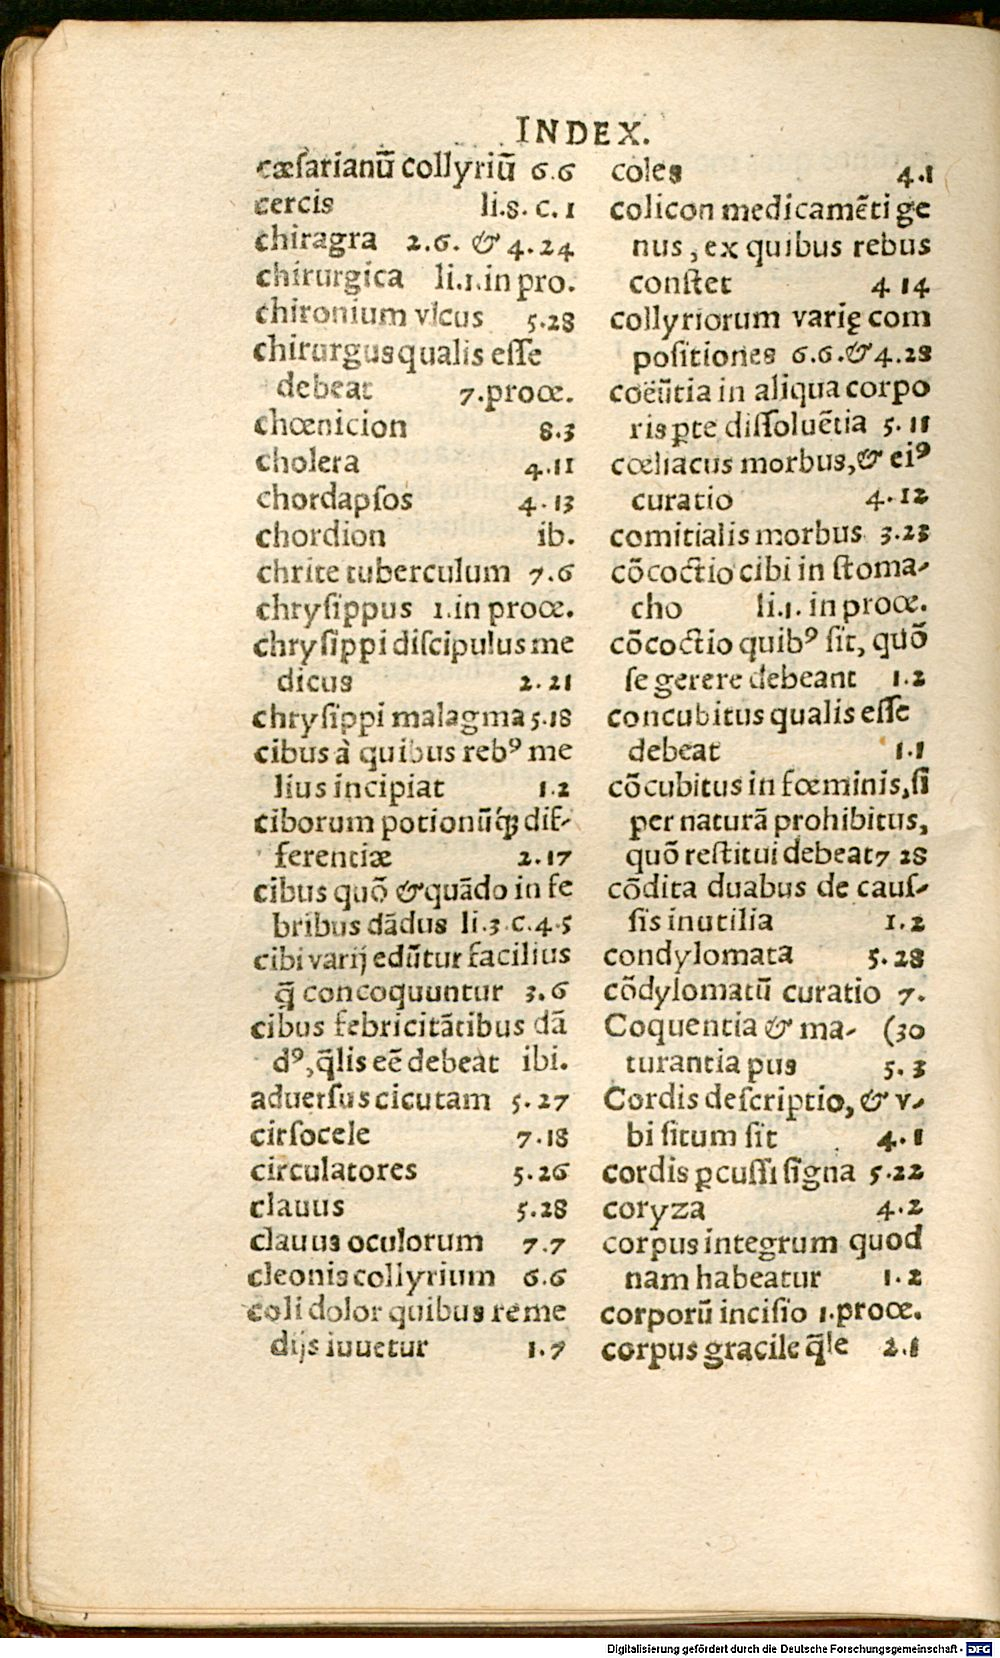 INDEX.
cæſarianū collyriū 6.6
cercis li.8. c. 1
chiragra 2.6. & 4.24
chirurgica li.1.in pro.
chironium vlcus 5.28
chirurgus qualis eſſe
debeat 7.proœ.
chœnicion 8.3
cholera 4.11
chordapſos 4.13
chordion ib.
chrite tuberculum 7.6
chryſippus 1.in proœ.
chryſippi diſcipulus me
dicus 2.21
chryſippi malagma 5.18
cibus à quibus rebꝰ me
lius incipiat 1.2
ciborum potionūq́ꝫ dif-
ferentiæ 2.17
cibus quō & quādo in fe
bribus dādus li.3.c.4.5
cibi varij edūtur facilius
q̄ concoquuntur 3.6
cibus febricitātibus dā
dꝰ, q̄lis eē debeat ibi.
aduerſus cicutam 5.27
cirſocele 7.18
circulatores 5.26
clauus 5.28
clauus oculorum 7.7
cleonis collyrium 6.6
coli dolor quibus reme
dijs iuuetur 1.7
coles 4.1
colicon medicamēti ge
nus, ex quibus rebus
conſtet 4 14
collyriorum varię com
poſitiones 6.6.& 4.28
coëūtia in aliqua corpo
ris ꝑte diſſoluētia 5.11
cœliacus morbus, & eiꝰ
curatio 4.12
comitialis morbus 3.23
cōcoctio cibi in ſtoma-
cho li.1. in proœ.
cōcoctio quibꝰ ſit, quō
ſe gerere debeant 1.2
concubitus qualis eſſe
debeat 1.1
cōcubitus in fœminis, ſi
per naturā prohibitus,
quō reſtitui debeat 7 28
cōdita duabus de cauſ-
ſis inutilia 1.2
condylomata 5.28
cōdylomatū curatio 7.
Coquentia & ma- (30
turantia pus 5.3
Cordis deſcriptio, & v-
bi ſitum ſit 4.1
cordis ꝑcuſſi ſigna 5.22
coryza 4.2
corpus integrum quod
nam habeatur 1.2
corporū inciſio 1.proœ.
corpus gracile q̄le 2.1
Digitalisierung gefördert durch die Deutsche Forschungsgemeinschaft - DFG